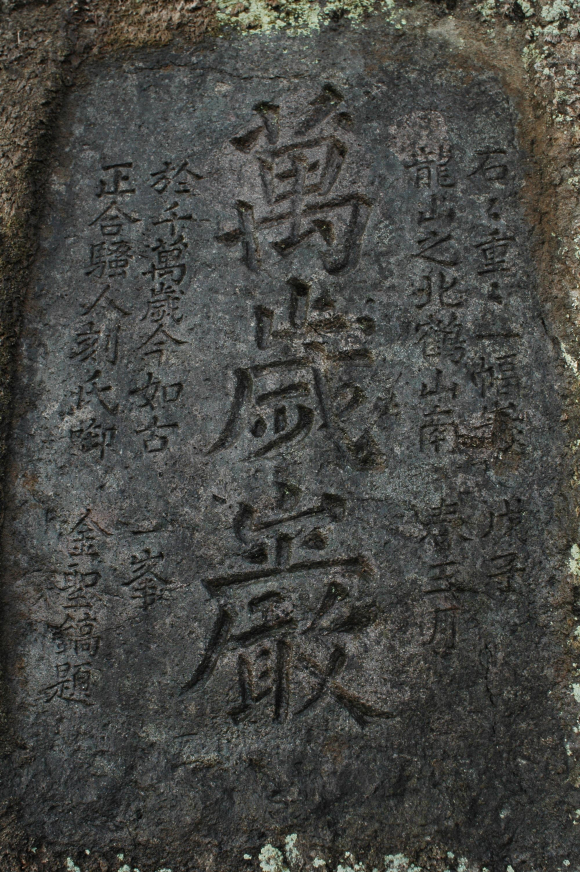 石〻重〻一幅 戊子
龍山之北鶴山南 春王月
萬歲巖
於千萬歲今如古 一峯
正合騷人刻氏啣 金聖鎬題